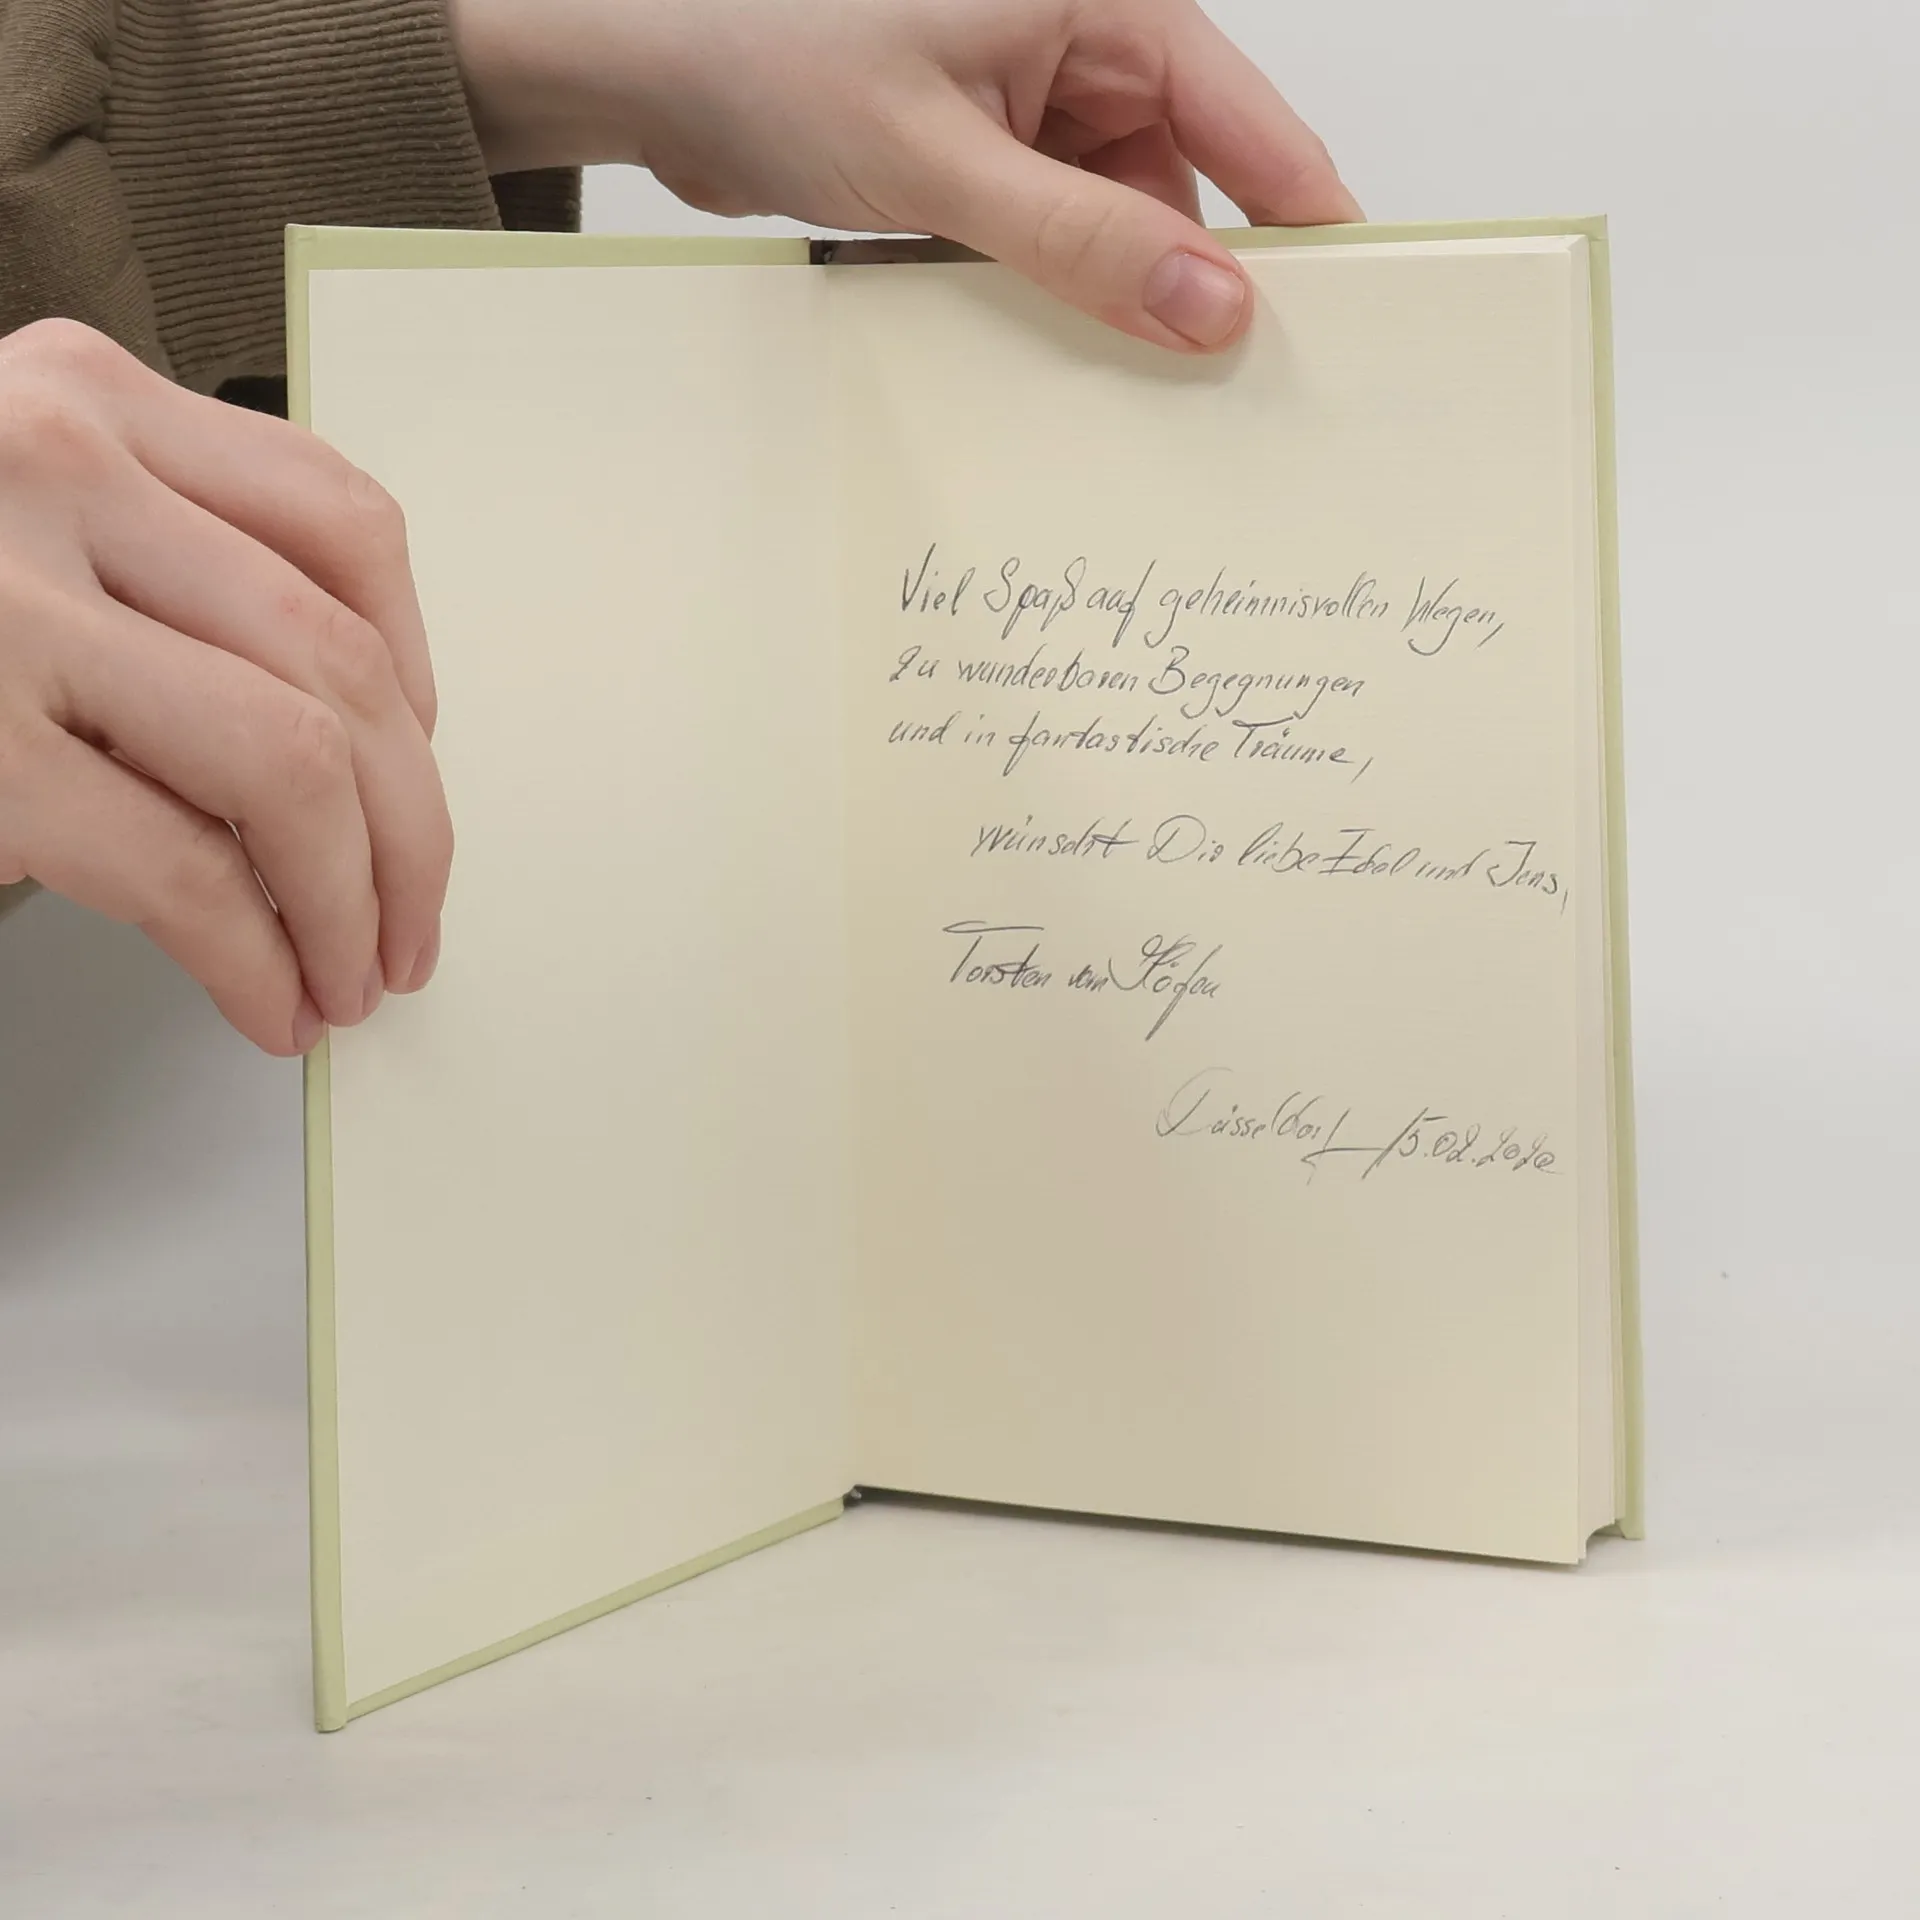 Viel Spaß auf geheimnisvollen Wegen,
zu wunderbaren Begegnungen
und in fantastische Träume,
wünscht Dir liebe und Jens,
Torsten vom
Düsseldorf 15.02.2020